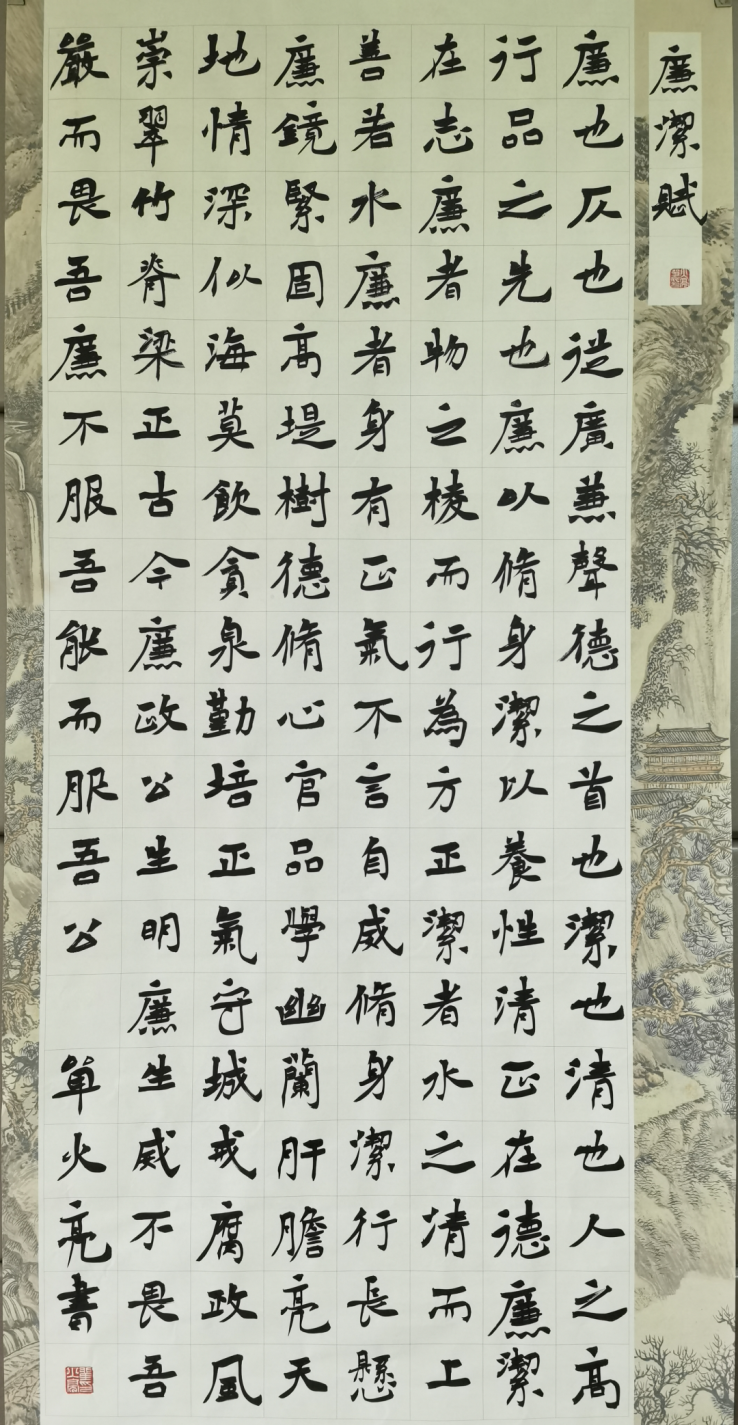 廉潔賦
廉也仄也從廣蒹聲德之首也潔也清也人之高
行品之先也廉以脩身潔以養性清正在德廉潔
在志廉者物之棱而行為方正潔者水之清而上
善若水廉者身有正氣不言自威脩身潔行長懸
廉鏡緊固高堤樹德脩心官品學幽蘭肝膽亮天
地情深似海莫飲貪泉勤培正氣守城戒腐政風
崇翠竹脊梁正古今廉政公生明廉生威不畏吾
嚴而畏吾廉不服吾能而服吾公
單火亮書